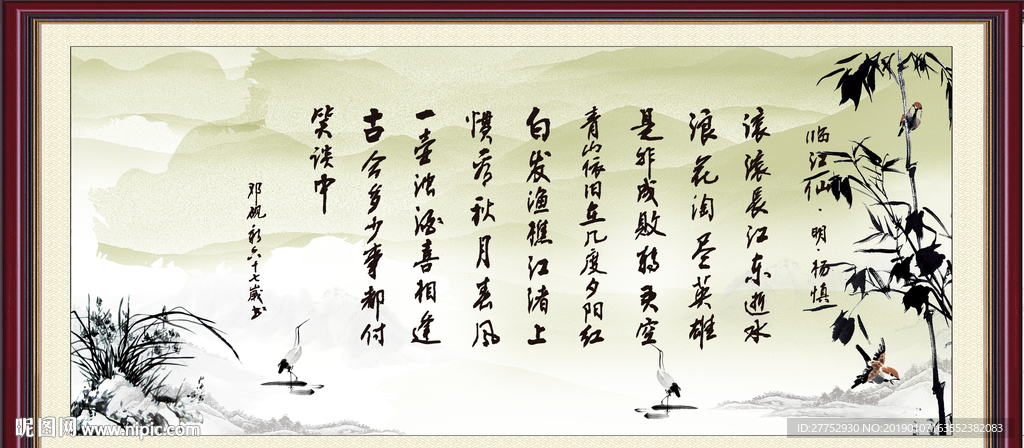 临江仙·明·杨慎
滚滚长江东逝水
浪花淘尽英雄
是非成败转头空
青山依旧在几度夕阳红
白发渔樵江渚上
惯看秋月春风
一壶浊酒喜相逢
古今多少事都付
笑谈中
邓砚彩六十七岁书
昵图网 www.nipic.com
ID:27752930 NO:20190107163552382083